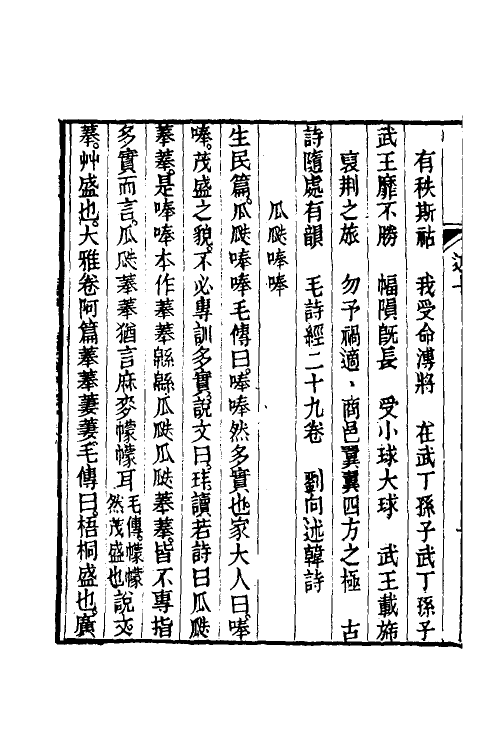 有秩斯祜　我受命溥將　在武丁孫子武丁孫子
武王靡不勝　幅隕旣長　受小球大球　武王載斾
裒荆之旅　勿予禍適、商邑翼翼四方之極　古
詩隨處有韻　毛詩經二十九卷　劉向述韓詩
瓜瓞唪唪
生民篇。瓜瓞唪唪毛傳曰。唪唪然多實也家大人曰。唪
唪。茂盛之貌。不必專訓多實。說文曰。玤讀若詩曰瓜瓞
菶菶。是唪唪本作菶菶緜緜瓜瓞瓜瓞菶菶。皆不專指
多實而言。瓜瓞菶菶猶言麻麥幪幪耳毛傳。幪幪然茂盛也說文
菶。艸盛也。大雅卷阿篇菶菶萋萋。毛傳曰。梧桐盛也。廣